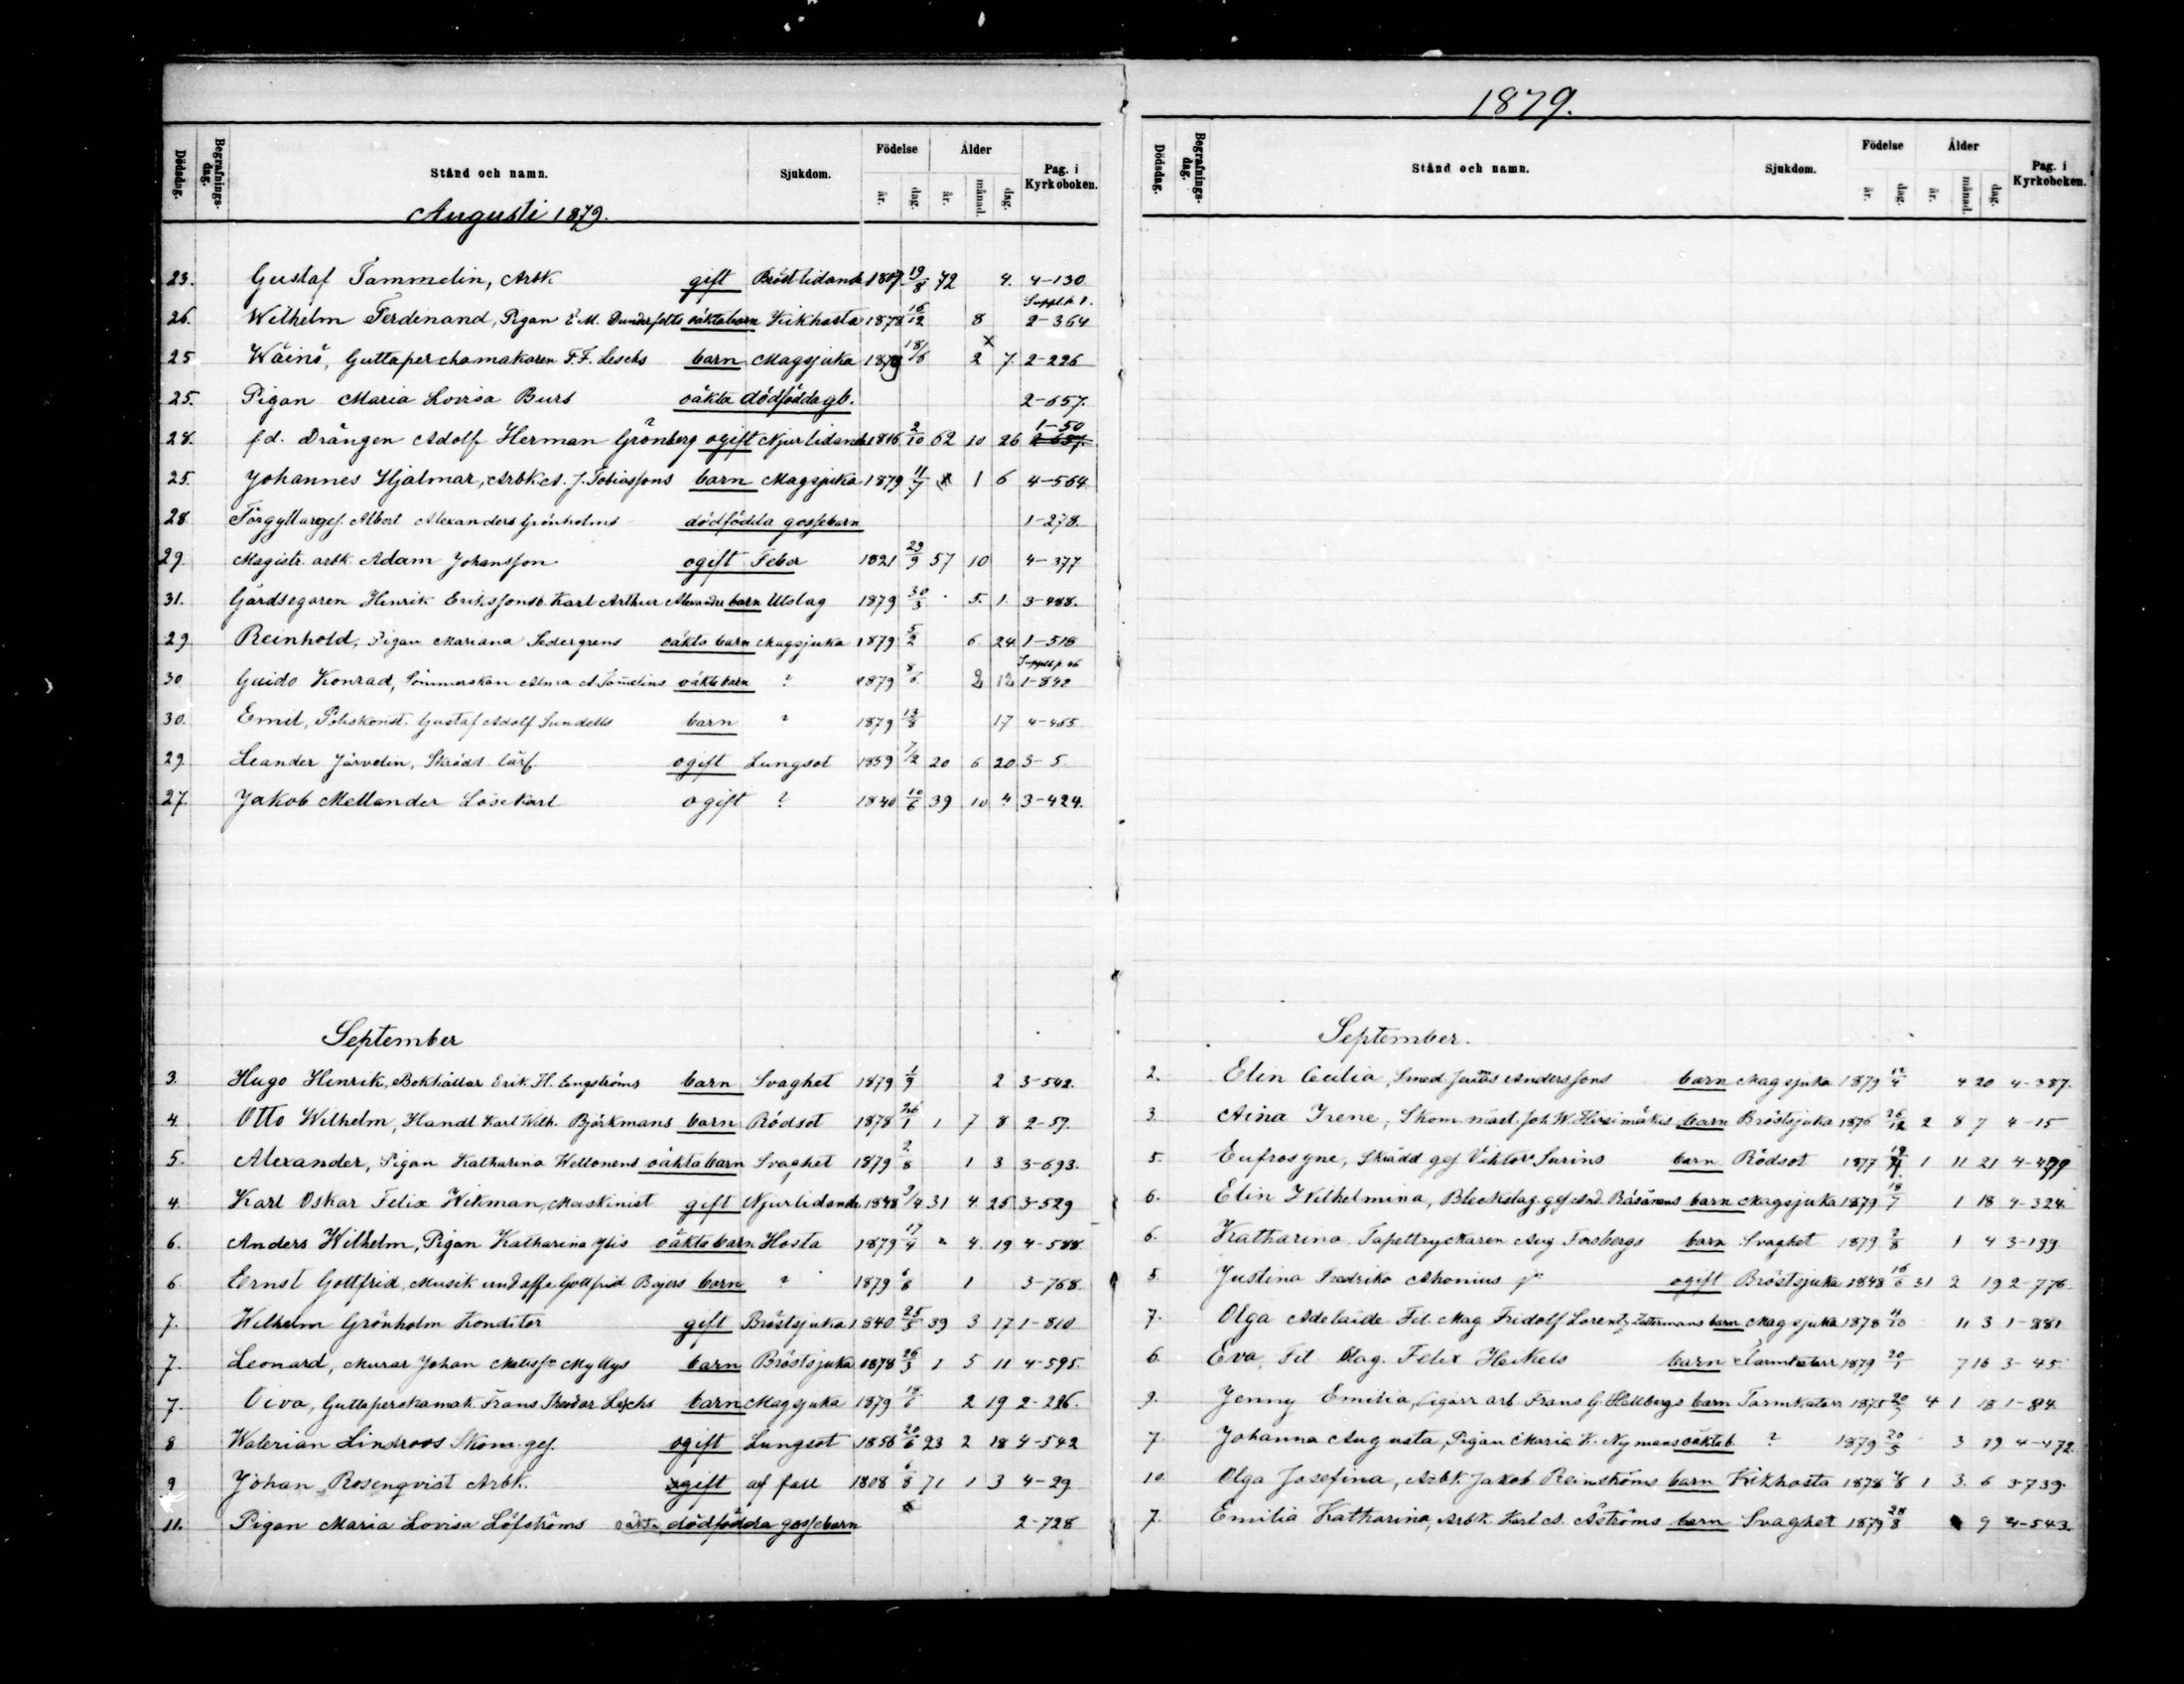 1879.
Dödsdag. Begrafnings-dag. Stånd och namn. Sjukdom. Födelse år. dag. Ålder år. månad. dag. Pag. i Kyrkoboken.
Augusti 1879.
23. Gustaf Tammelin, Arbk gift Bröstlidande 1807 19/8 72 4. 4-130
Suppl. p. 1.
26. Wilhelm Ferdinand, Pigan E. M. oäkta barn Kikhosta 1878 16/12 8 2-364
25 Wäinö, Guttaperchamakaren F. F. Leschs barn Magsjuka 1879 18/6 2 7. 2-226
25. Pigan Maria Lovisa Burs oäkta dödfödda gb. 2-657.
28. f.d. Drängen Adolf Herman Grönberg ogift Njurlidande 1816 2/10 62 10 26 1-50 2-657.
25. Johannes Hjalmar, Arbk A. J. Tobiassons barn Magsjuka 1879 11/7 1 6 4-564
28. Förgyllareges. Albert Alexanders Grönholms dödfödda gossebarn 1-278.
29. Magistr. arbk. Adam Johansson ogift Feber 1821 29/9 57 10 4-377
31. Gårdsegaren Henrik Erikssons b. Karl Arthur Alexander barn Utslag 1879 30/3 5. 1. 3-488.
29. Reinhold, Pigan Mariana Sedergrens oäkta barn Magsjuka 1879 5/2 6. 24. 1-518
30 Guido Konrad, Sömmerskan Alma A. Tam̄elins oäkta barn ? 1879 8/6 2 12 1-842
30. Emil, Poliskonst. Gustaf Adolf Sundells barn ? 1879 13/8 17 4-465
29. Leander Järvelin, Skrädd. lärl. ogift Lungsot 1859 7/12 20 6 20 3-5.
27. Jakob Mellander Lösekarl ogift ? 1840 10/6 39 10 4 3-424.
September
3. Hugo Henrik, Bokhållar Erik H. Engströms barn Svaghet 1879 1/9 2 3-542.
4. Otto Wilhelm, Handl Karl Wilh. Björkmans barn Rödsot 1878 26/1 1 7 8 2-57.
5. Alexander, Pigan Katharina Weltonens oäkta barn Svaghet 1879 2/8 1 3 3-693.
4. Karl Oskar Felix Wikman, Maskinist gift Njurlidande 1848 9/4 31 4. 25. 3-529
6. Anders Wilhelm, Pigan Katharina Ylis oäkta barn Hosta 1879 17/4 4. 19 4-588
6 Ernst Gottfrid, Musik undoff. Gottfrid Boijers barn ? 1879 6/8 1 3-768.
7. Wilhelm Grönholm Konditor gift Bröstsjuka 1840 25/5 39 3 17 1-810
7. Leonard, Murar Johan Mattss. Myllys barn Bröstsjuka 1878 26/3 1 5 11 4-595.
7. Oiva, Guttaperchamak. Frans Theodor Leschs barn Magsjuka 1879 18/6 2 19 2-226.
8 Walerian Lindroos Skom. ges. ogift Lungsot 1856 20/6 23 2 18 4-542
9 Johan Rosenqvist Arbk. gift af fall 1808 6/8 71 1 3 4-29
11. Pigan Maria Lovisa Löfströms oäkta dödfödda gossebarn 2-728
Dödsdag. Begrafnings-dag. Stånd och namn. Sjukdom. Födelse år. dag. Ålder år. månad. dag. Pag. i Kyrkoboken.
September.
2. Elin Cecilia, Smed Anderssons barn Magsjuka 1879 12/4 4 20 4-387.
3. Aina Irene, Skom. mäst. Joh. W. Hirsimäkis barn Bröstsjuka 1876 26/12 2 8 7 4-15
5. Eufrosyne, Skrädd ges Viktor Surins barn Rödsot 1877 1 11 21
6. Elin Wilhelmina, Bleckslag. ges And. Räsänens barn Magsjuka 1879 18/7 1 18 4-324.
6. Katharina Tapettryckaren Aug Forsbergs barn Svaghet 1879 2/8 1 4 3-199.
5. Justina Fredrika Ahonius ogift Bröstsjuka 1848 16/6 31 2 19 2-776.
7. Olga Adelaide Fil. Mag Fridolf Lorentz barn Magsjuka 1878 4/10 11 3 1-881
6. Eva, Fil. Mag. Felix Heikels barn Tarmkatarr 1879 20/1 7 16 3-45.
9. Jenny Emilia, Cigarr arb. Frans G. Hallbergs barn Tarmkatarr 1875 20/7 4 1 18 1-84.
7. Johanna Augusta, Pigan Maria K. Nymans oäkta b. ? 1879 20/5 3 19 4-472.
10. Olga Josefina, Arbk. Jakob Reinströms barn Kikhosta 1878 4/6 1 3. 6 3-739.
7. Emilia Katharina, Arbk. Karl A. Åströms barn Svaghet 1879 28/8 9 4-543.